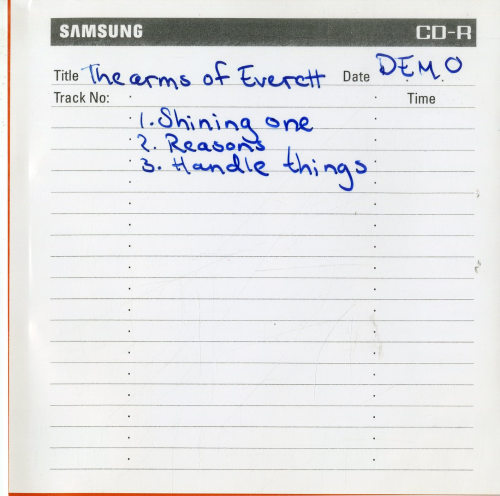 SAMSUNG CD-R
Title The arms of Everett Date DEMO
Track No: Time
1. Shining one
2. Reasons
3. Handle things